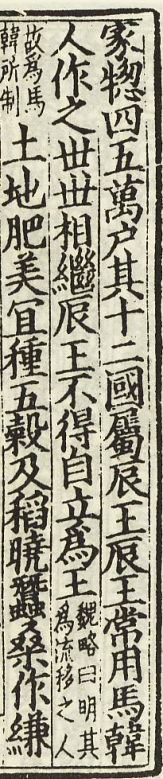 家揔四五萬户其十二國屬辰王辰王常用馬韓
人作之丗丗相繼辰王不得自立爲王魏略曰明其爲流移之人
故爲馬韓所制土地肥美冝種五榖及稻曉蠶桑作縑